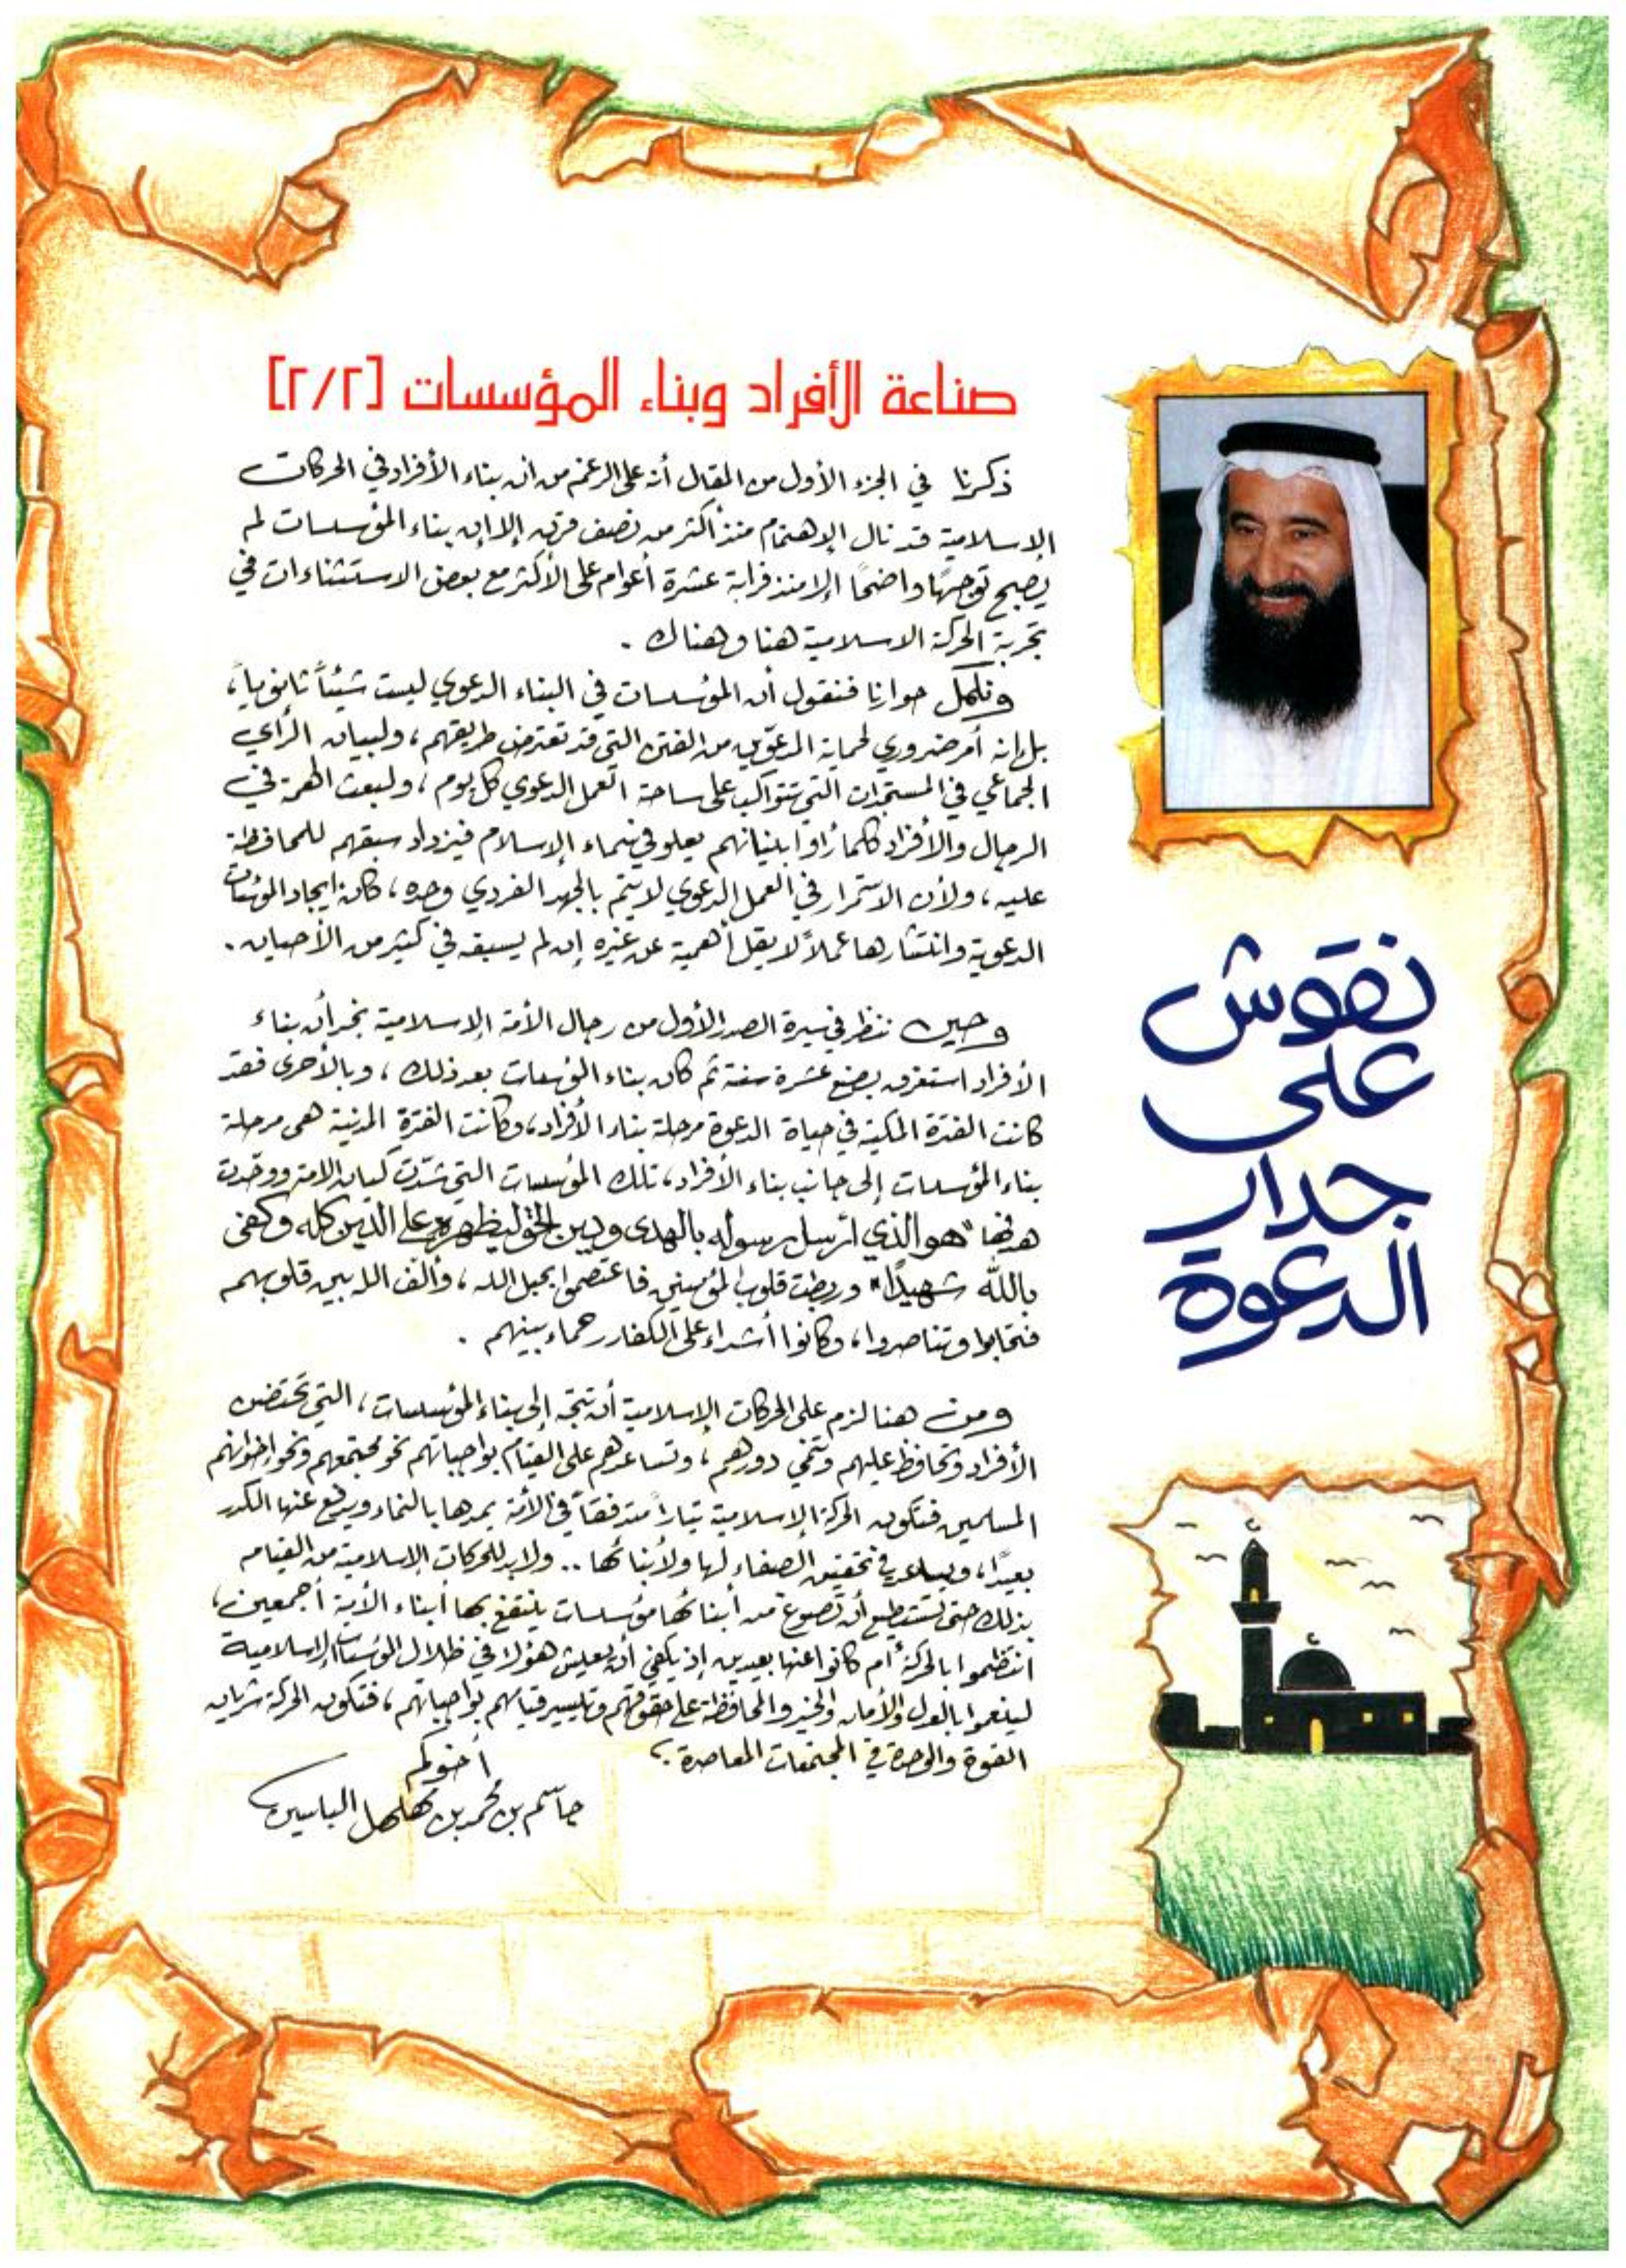 صناعة الأفراد وبناء المؤسسات [٢/٢]
ذكرنا في الجزء الأول من المقال أنه على الرغم من أن بناء الأفراد في الحركات
الإسلامية قد نال الإهتمام منذ أكثر من نصف قرن إلا أن بناء المؤسسات لم
يصبح توجهًا واضحًا إلا منذ قرابة عشرة أعوام على الأكثر مع بعض الاستثناءات في
تجربة الحركة الاسلامية هنا وهناك .
ونكمل حوارنا فنقول أن المؤسسات في البناء الدعوي ليست شيئاً ثانوياً،
بل إنه أمر ضروري لحماية المدعوين من الفتن التي قد تعترض طريقهم، ولبيان الرأي
الجماعي في المستجدات التي تتواكب على ساحة العمل الدعوي كل يوم، ولبعث الهمة في
الرجال والأفراد كلما رأوا بنيانهم يعلو في سماء الإسلام فيزداد سبقهم للمحافظة
عليه، ولأن الاستمرار في العمل الدعوي لا يتم بالجهد الفردي وحده، كان إيجاد المؤسسات
الدعوية وانتشارها عملاً لا يقل أهمية عن غيره إن لم يسبقه في كثير من الأحيان .
وحين ننظر في سيرة الصدر الأول من رجال الأمة الإسلامية نجد أن بناء
الأفراد استغرق بضع عشرة سنة ثم كان بناء المؤسسات بعد ذلك، وبالأحرى فقد
كانت الفترة المكية في حياة الدعوة مرحلة بناء الأفراد، وكانت الفترة المدنية هي مرحلة
بناء المؤسسات إلى جانب بناء الأفراد، تلك المؤسسات التي شدت كيان الامة ووحدت
هدفها "هو الذي أرسل رسوله بالهدى ودين الحق ليظهره على الدين كله وكفى
بالله شهيدًا" وربطت قلوب المؤمنين فاعتصموا بحبل الله، وألف الله بين قلوبهم
فتحابوا وتناصروا، وكانوا أشداء على الكفار رحماء بينهم .
ومن هنا لزم على الحركات الإسلامية أن تتجه إلى بناء المؤسسات، التي تحتضن
الأفراد وتحافظ عليهم وتنمي دورهم، وتساعدهم على القيام بواجباتهم نحو مجتمعهم ونحو إخوانهم
المسلمين فتكون الحركة الإسلامية تياراً متدفقاً في الأمة يمدها بالنماء ويدفع عنها الكدر
بعيدًا، ويساعد في تحقيق الصفاء لها ولأبنائها .. ولابد للحركات الإسلامية من القيام
بذلك حتى تستطيع أن تصوغ من أبنائها مؤسسات ينتفع بها أبناء الأمة أجمعين،
انتظموا بالحركة أم كانوا عنها بعيدين إذ يكفي أن يعيش هؤلاء في ظلال المؤسسات الإسلامية
لينعموا بالعدل والأمان والخير والمحافظة على حقوقهم وتيسير قيامهم بواجباتهم، فتكون الحركة شريان
القوة والوحدة في المجتمعات المعاصرة .
أخوكم
جاسم بن محمد بن مهلهل الياسين
نقوش
على
جدار
الدعوة